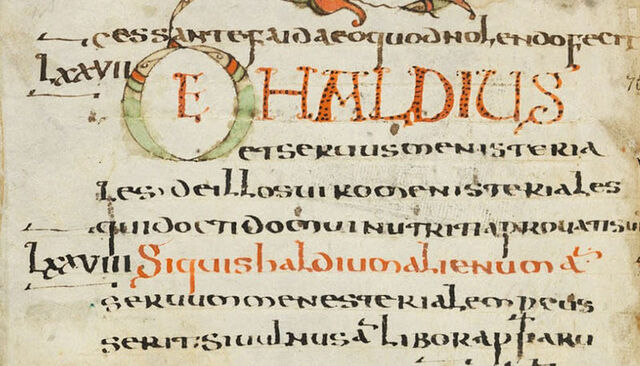 cessantefaidaeoquodnolendofecit
Lxxvii DE HALDIUS
etseruusmenisteria
les; deillosuiromenisteriales
quidoctidomuinutritiaprouatisu
Lxxviii Siquishaldiumalienum aꝉ
seruummenesterialempercus
serit; siuulnus aꝉ liborapparu